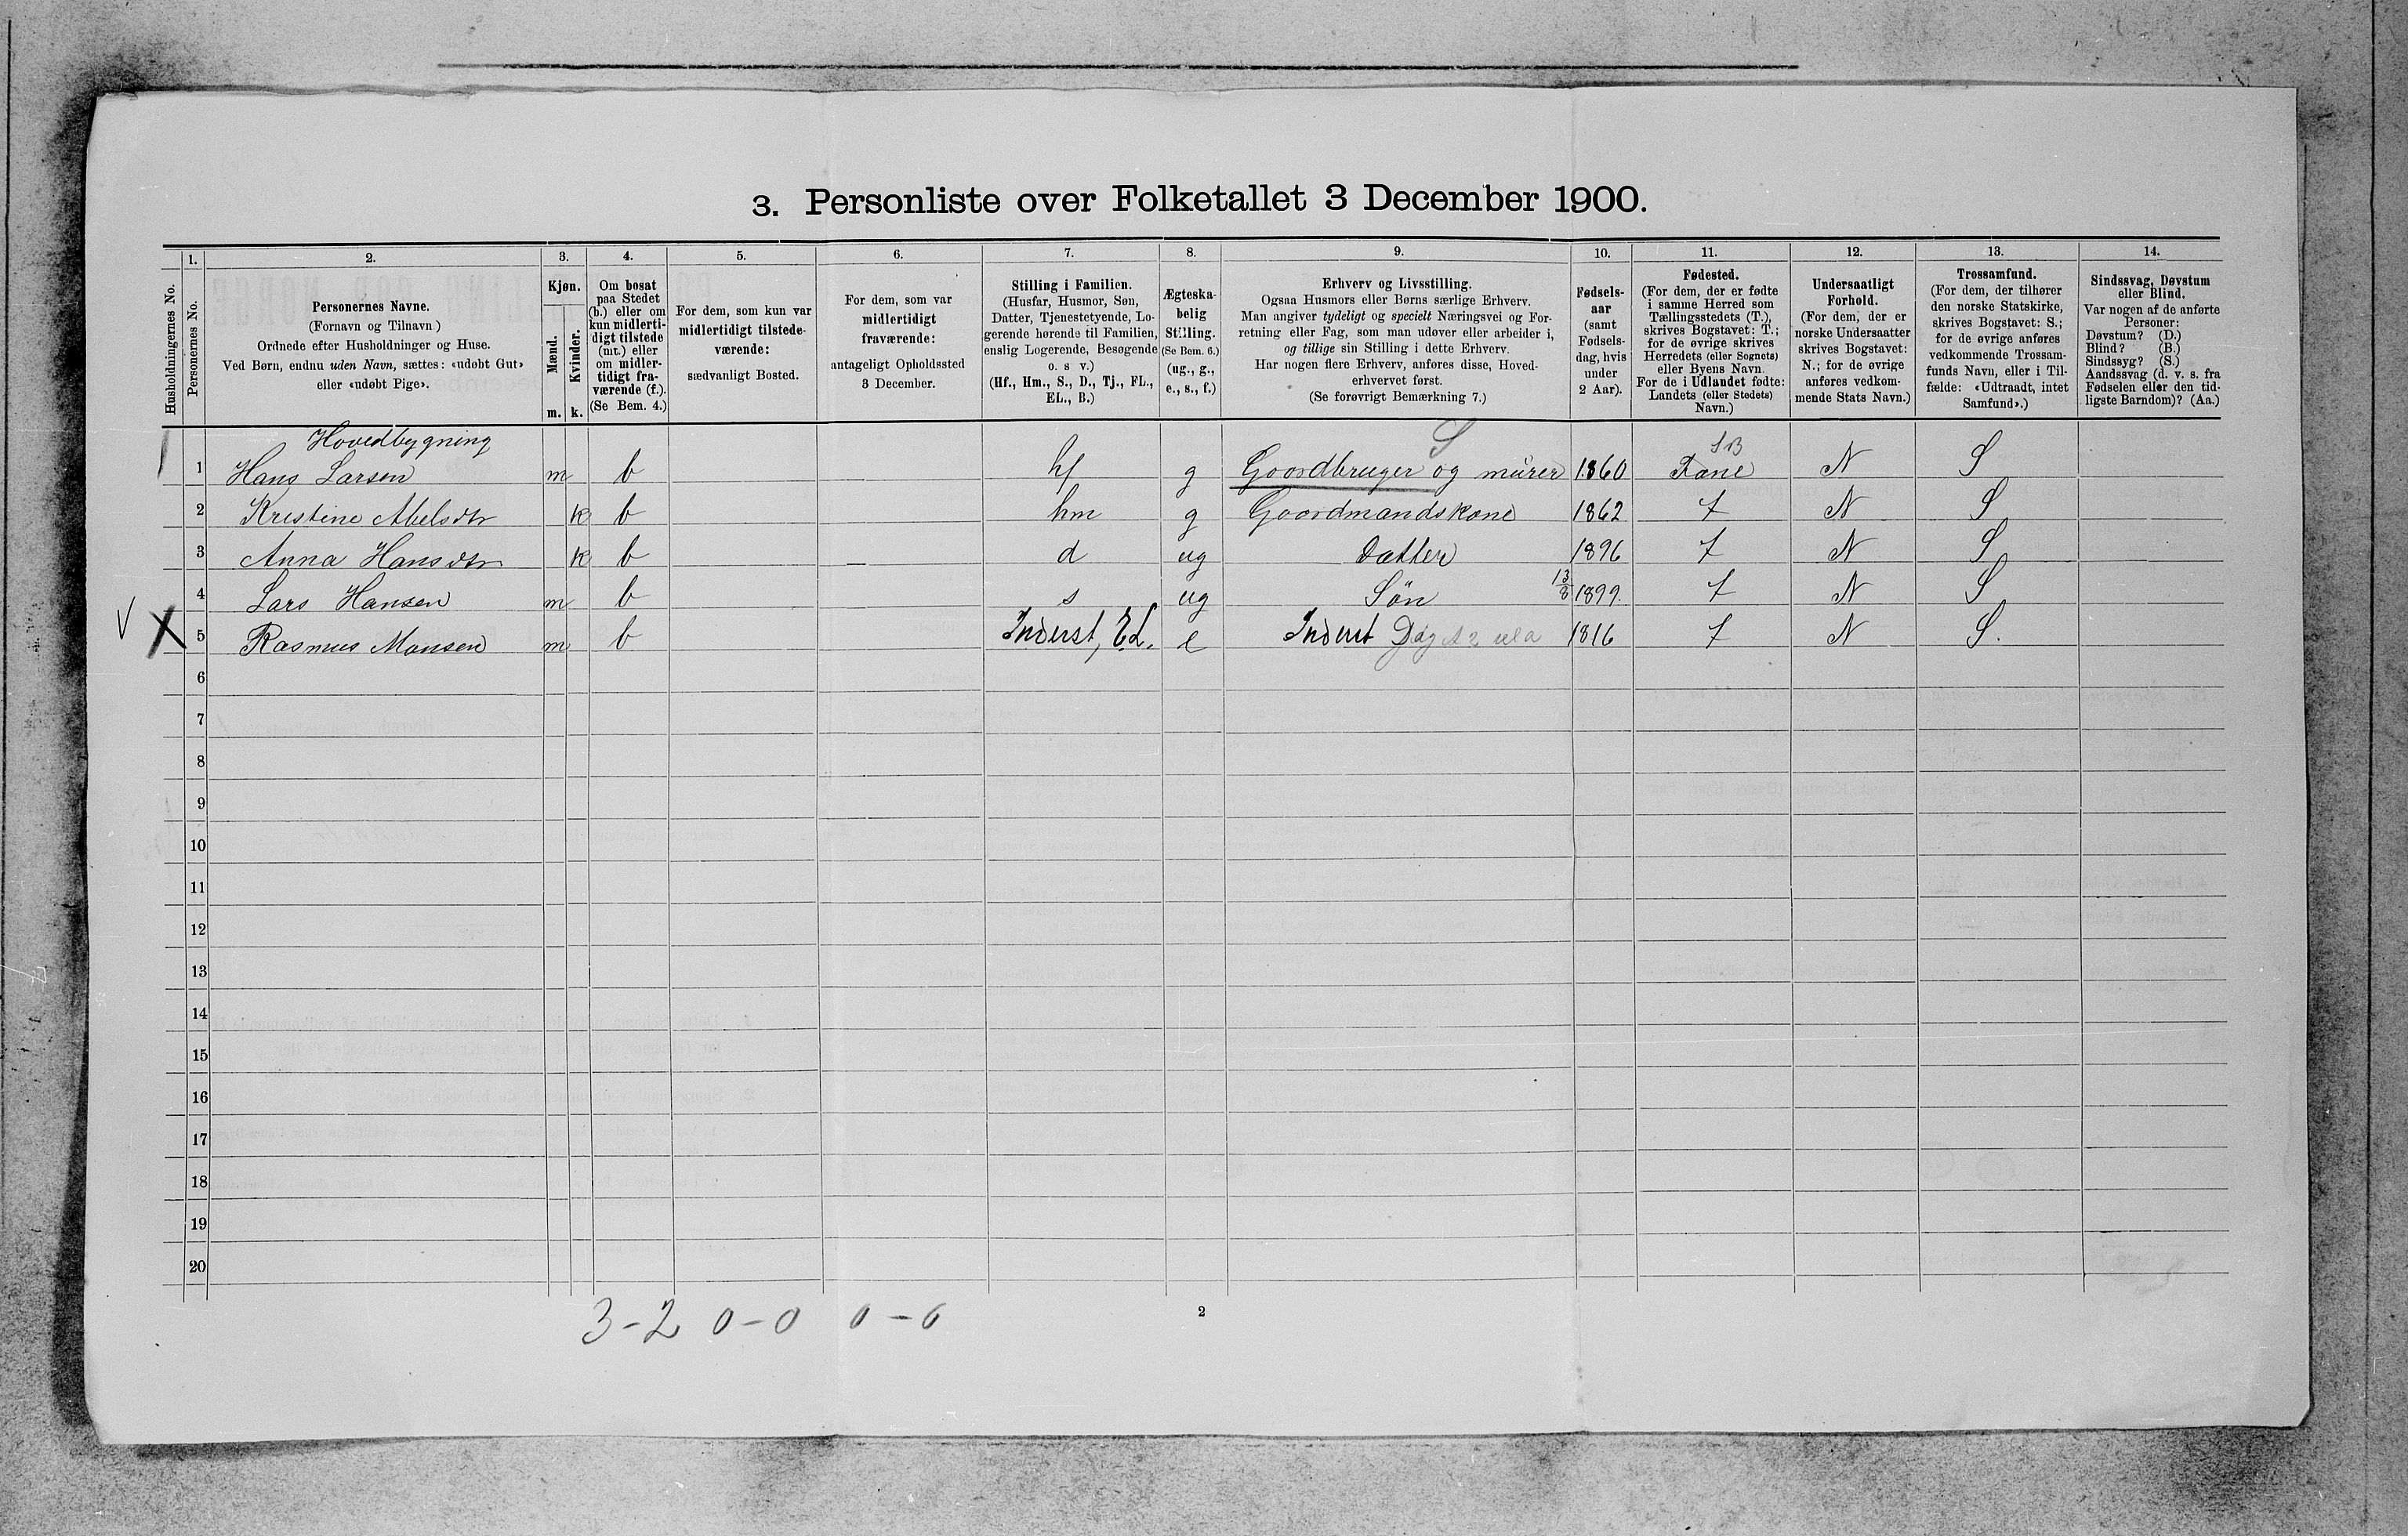 3. Personliste over Folketallet 3 December 1900.
1. 2. 3. 4. 5. 6. 7. 8. 9. 10. 11. 12. 13. 14.
Husholdningernes No.
Personernes No.
Personernes Navne.
(Fornavn og Tilnavn.)
Ordnede efter Husholdninger og Huse.
Ved Børn, endnu uden Navn, sættes: «udøbt Gut»
eller «udøbt Pige».
Kjøn.
Mænd.
Kvinder.
m. k.
Om bosat
paa Stedet
(b.) eller om
kun midlerti-
digt tilstede
(mt.) eller
om midler-
tidigt fra-
værende (f.).
(Se Bem. 4.)
For dem, som kun var
midlertidigt tilstede-
værende:
sædvanligt Bosted.
For dem, som var
midlertidigt
fraværende:
antageligt Opholdssted
3 December.
Stilling i Familien.
(Husfar, Husmor, Søn,
Datter, Tjenestetyende, Lo-
gerende hørende til Familien,
enslig Logerende, Besøgende
o. s v.)
(Hf., Hm., S., D., Tj., FL.,
EL., B.)
Ægteska-
belig
Stilling.
(Se Bem. 6.)
(ug., g.,
e., s., f.)
Erhverv og Livsstilling.
Ogsaa Husmors eller Børns særlige Erhverv.
Man angiver tydeligt og specielt Næringsvei og For-
retning eller Fag, som man udøver eller arbeider i,
og tillige sin Stilling i dette Erhverv.
Har nogen flere Erhverv, anføres disse, Hoved-
erhvervet først.
(Se forøvrigt Bemærkning 7.)
Fødsels-
aar
(samt
Fødsels-
dag, hvis
under
2 Aar).
Fødested.
(For dem, der er fødte
i samme Herred som
Tællingsstedets (T.),
skrives Bogstavet: T.;
for de øvrige skrives
Herredets (eller Sognets)
eller Byens Navn.
For de i Udlandet fødte:
Landets (eller Stedets)
Navn.)
Undersaatligt
Forhold.
(For dem, der er
norske Undersaatter
skrives Bogstavet:
N.; for de øvrige
anføres vedkom-
mende Stats Navn.)
Trossamfund.
(For dem, der tilhører
den norske Statskirke,
skrives Bogstavet: S.;
for de øvrige anføres
vedkommende Trossam-
funds Navn, eller i Til-
fælde: «Udtraadt, intet
Samfund».)
Sindssvag, Døvstum
eller Blind.
Var nogen af de anførte
Personer:
Døvstum? (D.)
Blind? (B.)
Sindssyg? (S.)
Aandssvag (d. v. s. fra
Fødselen eller den tid-
ligste Barndom)? (Aa.)
Hovedbygning S SB
1 Hans Larsen m b hf g Goordbruger og mürer 1860 Fane N S
2 Kristine Abelsdtr k b hm g Goordmandskone 1862 T N S
3 Anna Hansdtr k b — d ug Datter 1896 T N S
4 Lars Hansen m b s ug Søn 13/8 1899. T N S
V X 5 Rasmus Monsen m b Inderst, EL. e Inderst 1816 T N S.
6
7
8
9
10
11
12
13
14
15
16
17
18
19
20
3-2 0-0 0-0
2